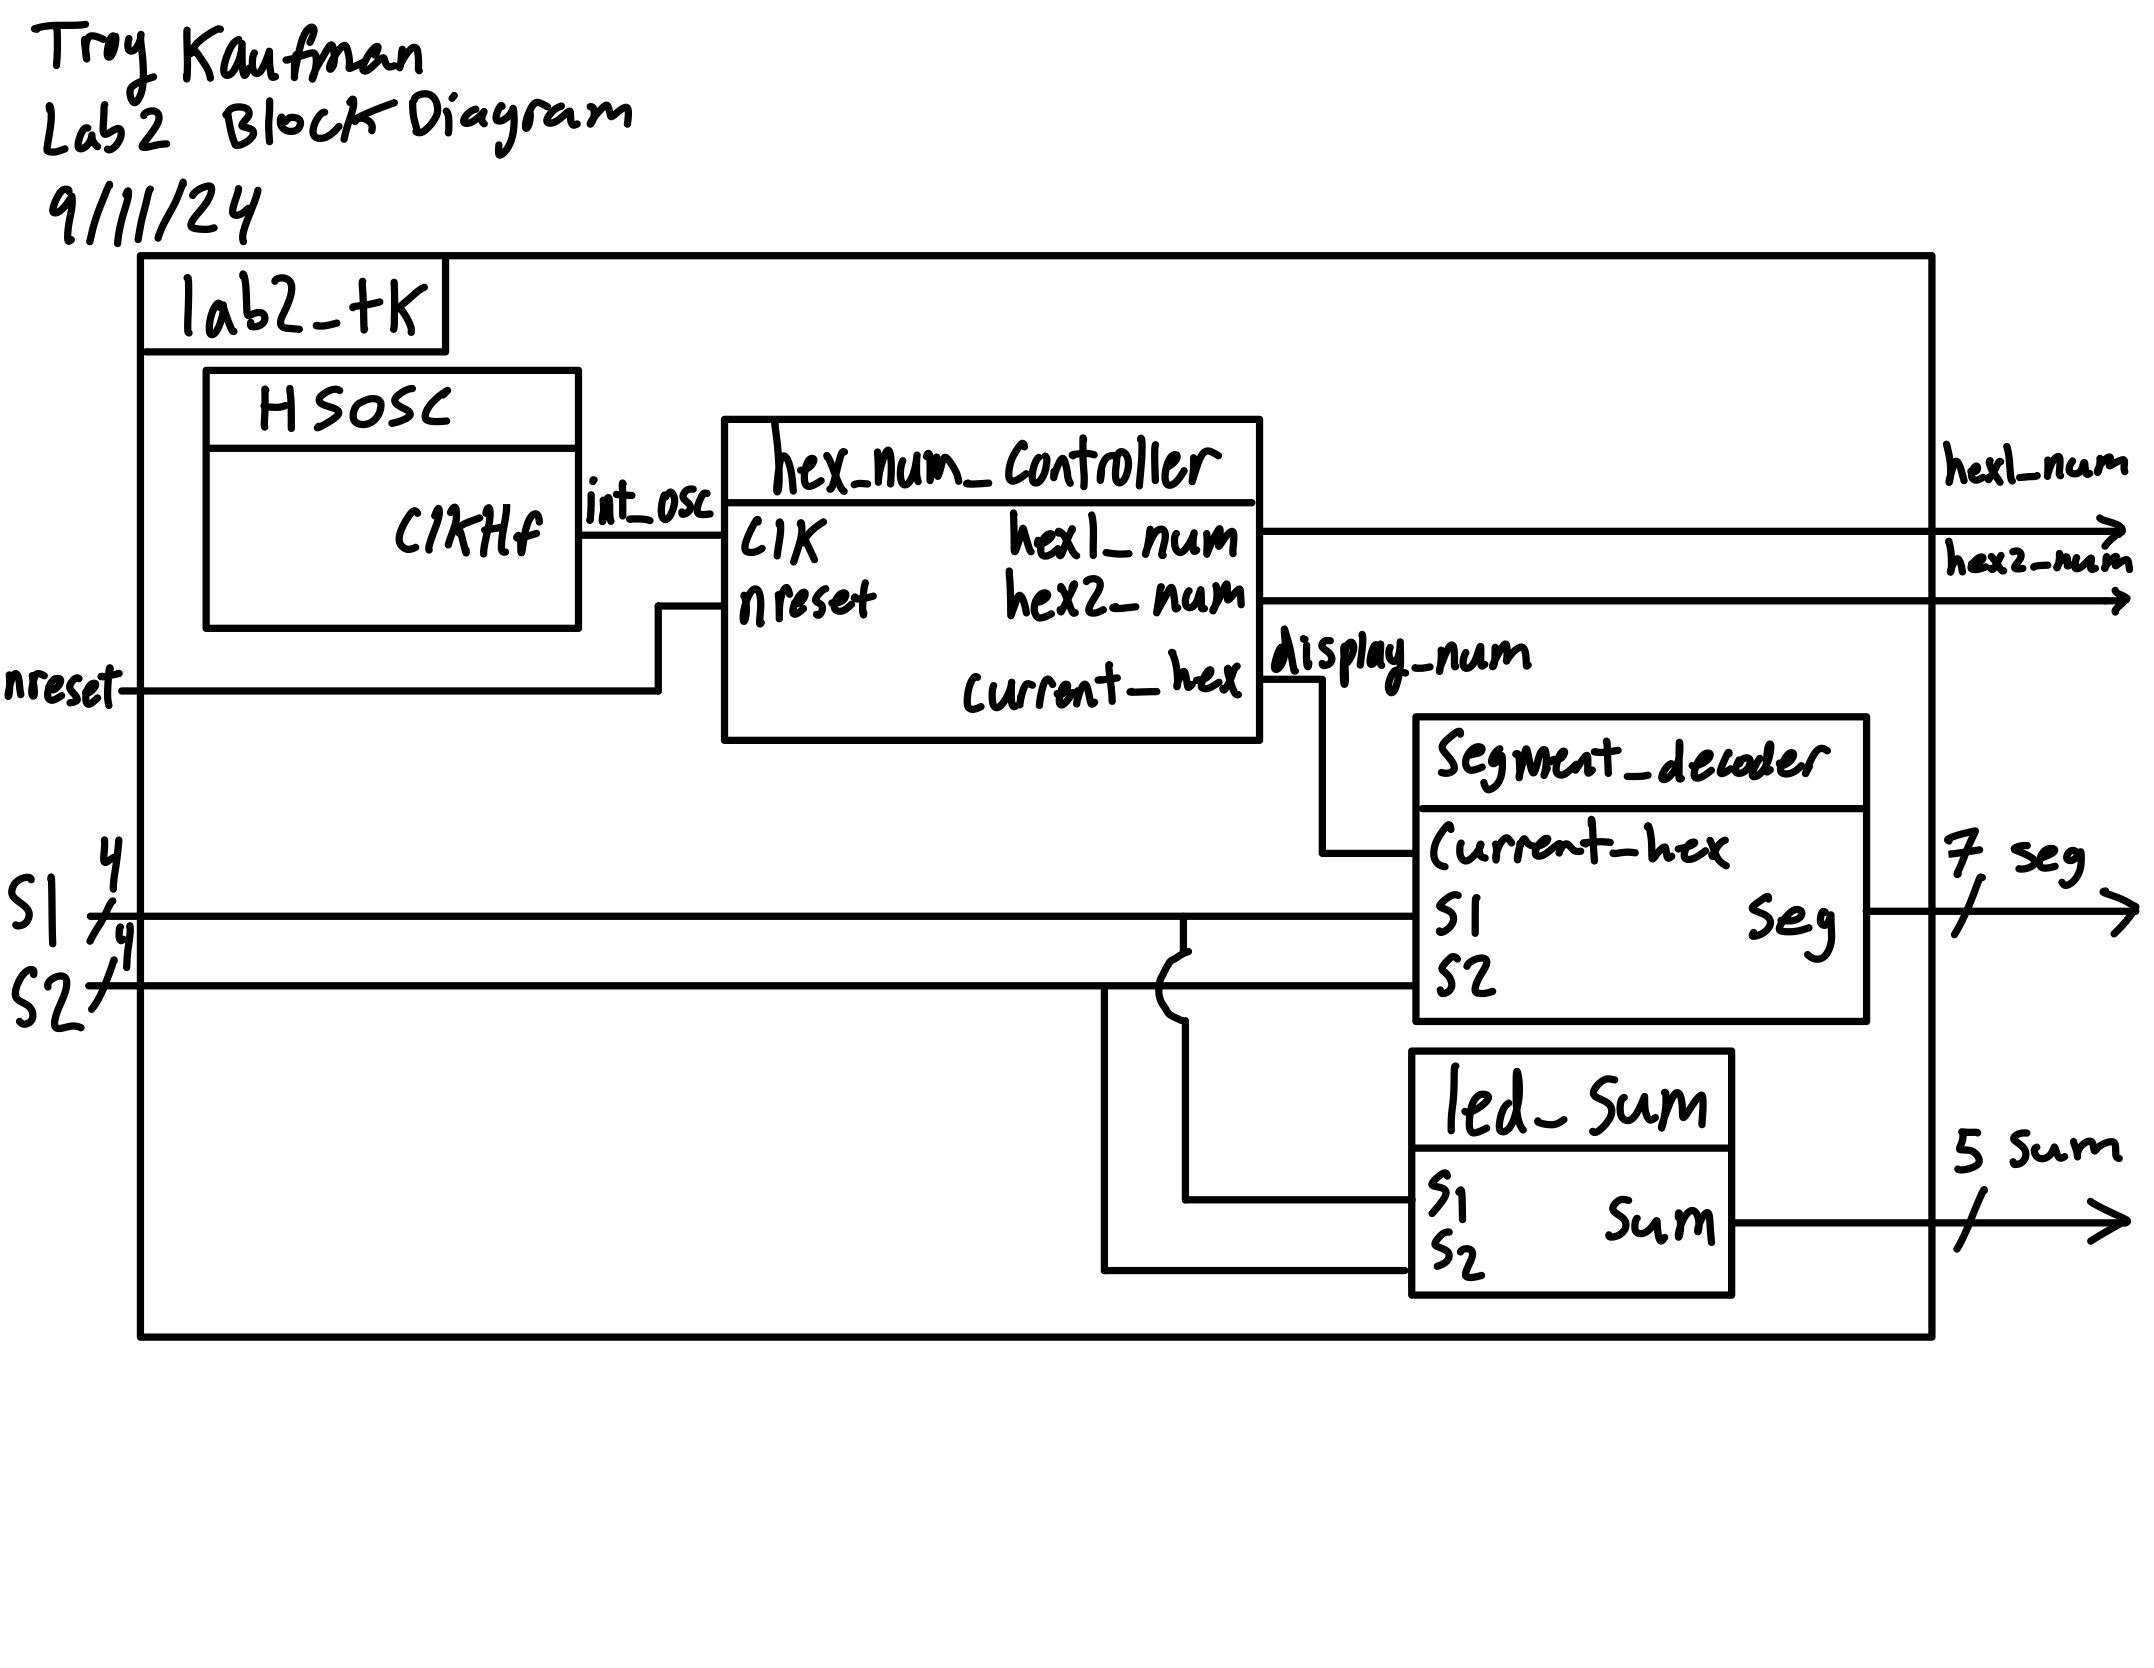 Troy Kaufman
Lab2 Block Diagram
9/11/24
lab2_tk
HSOSC
clkHf
int_osc
hex_num_controller
clk
nreset
hex1_num
hex2_num
current_hex
hex1_num
hex2_num
display_num
nreset
segment_decoder
current_hex
s1
s2
seg
7 seg
4
s1
4
s2
led_sum
s1
s2
sum
5 sum